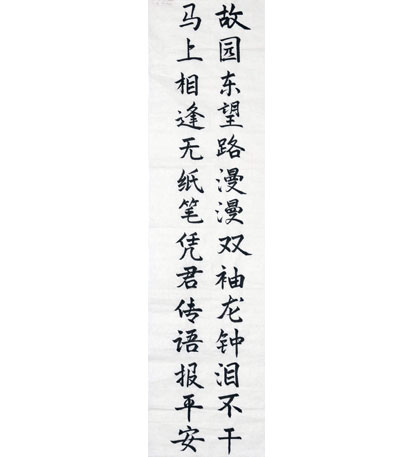 故园东望路漫漫双袖龙钟泪不干
马上相逢无纸笔凭君传语报平安